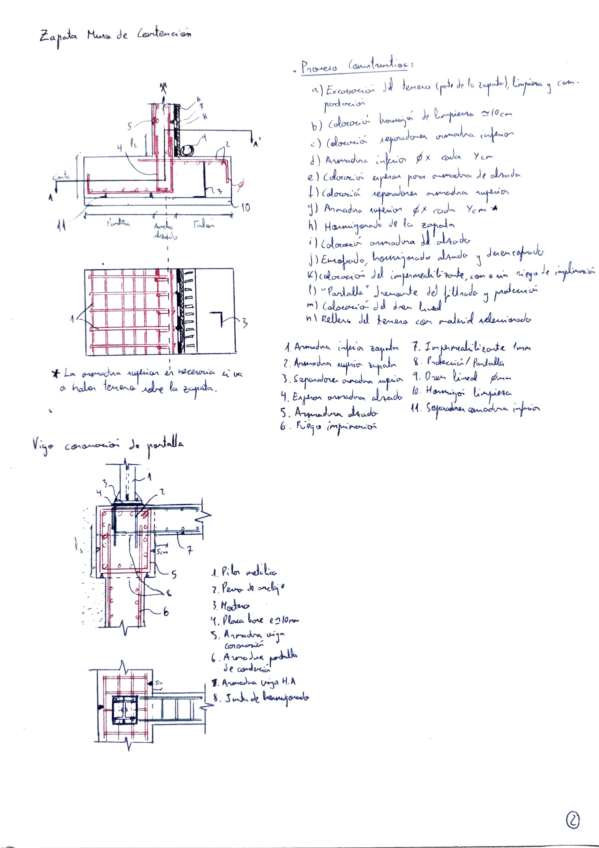 Zapata Muro de Contención
- Proceso Constructivo:
a) Excavación del terreno (parte de la zapata), limpieza y com-
pactación
b) Colocació hormigón de limpieza ≃10cm
c) Colocació separadores armadura inferior
d) Armadura inferior ϕx cada Ycm
e) Colocació esperas para armadura de alzado
f) Colocació separadores armadura superior
g) Armadura superior ϕx cada Ycm *
h) Hormigonado de la zapata
i) Colocació armadura del alzado
j) Encofrado, hormigonado alzado y desencofrado
k) Colocación del impermeabilizante, con o sin riego de imprimación
l) "Pantalla" drenante del filtrado y protecció
m) Colocació del dren lineal
n) Relleno del terreno con material seleccionado
5
6
7
8
4
2
A'
ls
4
3
canto
A
10
11
Puntera
Ancho
alzado
Talón
1
3
* La armadura superior es necesaria si va
a haber terreno sobre la zapata.
1. Armadura inferior zapata
2. Armadura superior zapata
3. Separadores armadura superior
4. Esperas armadura alzado
5. Armadura alzado
6. Riego imprimación
7. Impermeabilizante 1mm
8. Protecció/Pantalla
9. Dren lineal ϕmm
10. Hormigó limpieza
11. Separadores armadura inferior
Viga coronación de pantalla
3
1
4
2
5cm
7
5
8
6
1. Pilar metálico
2. Perno de anclaje
3. Mortero
4. Placa base e≃10mm
5. Armadura viga
coronación
6. Armadura pantalla
de contenció
7. Armadura viga H.A
8. Junta de hormigonado
2